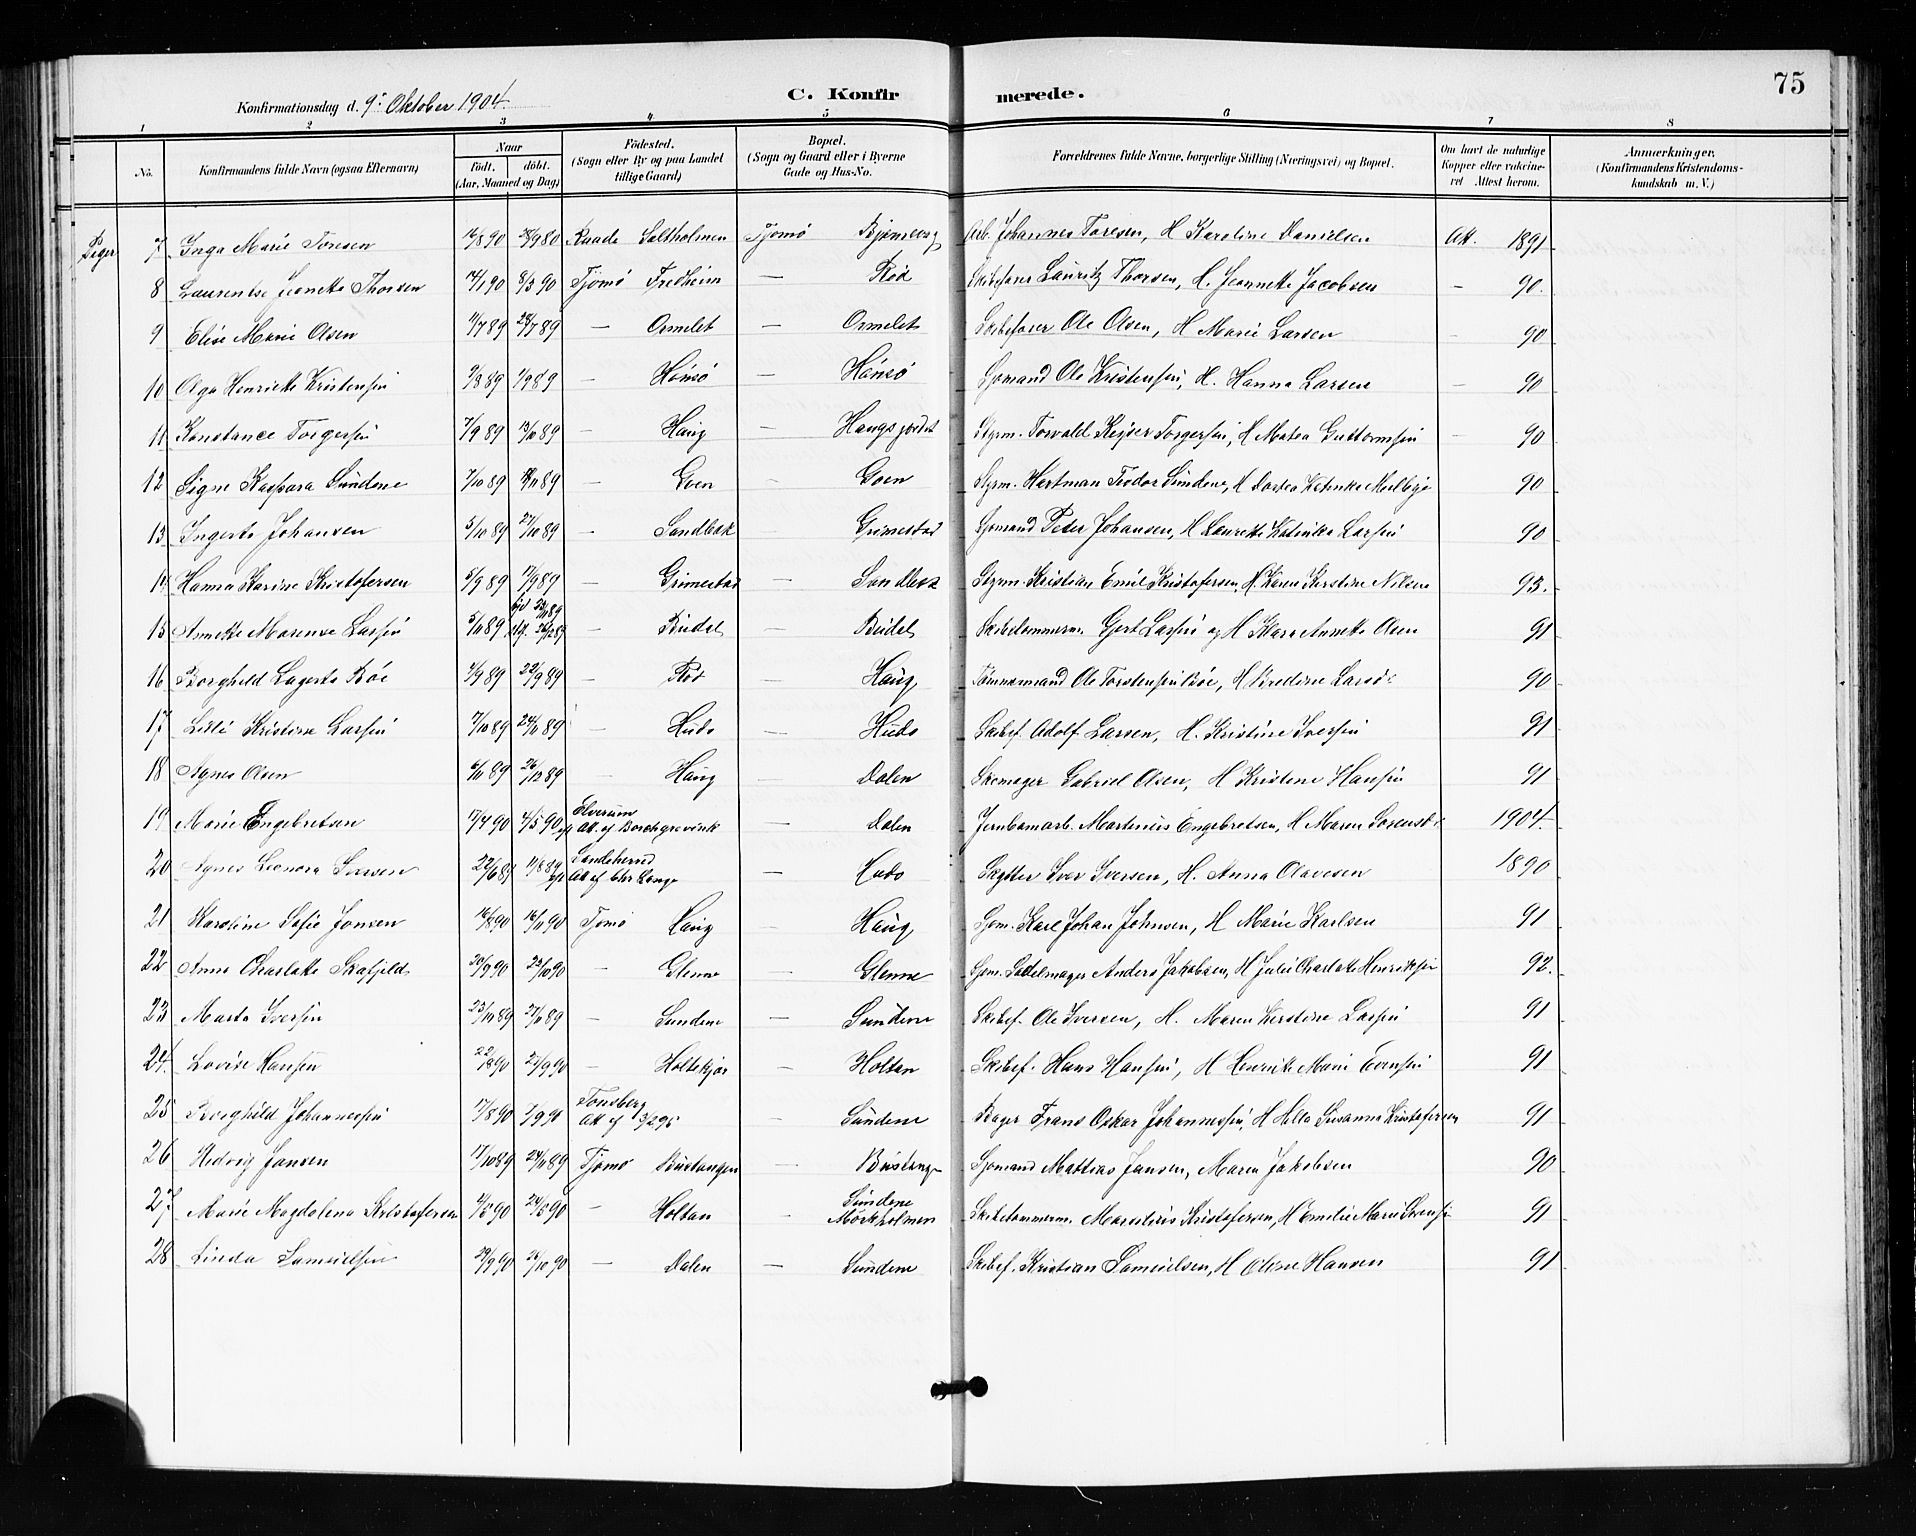 75
Konfirmationsdag d. 9de Oktober 1904.
C. Konfirmerede.
1 2 3 4 5 6 7 8
No.
Konfirmandens fulde Navn (ogsaa Efternavn)
Naar
født. døbt.
(Aar, Maaned og Dag)
Fødested.
(Sogn eller By og paa Landet tillige Gaard)
Bopæl.
(Sogn og Gaard eller i Byerne Gade og Hus-No.
Forældrenes fulde Navne, borgerlige Stilling (Næringsvei) og Bopæl.
Om havt de naturlige Kopper eller vaccineret Attest herom.
Anmerkninger.
(Konfirmandens Kristendomskundskab m. V.)
Piger 7 Inga Marie Toresen 16/8 90 28/9 80 Raade Saltholmen Tjømø Bjørneberg Arb. Johannes Toresen, H Karoline Danielsen Att. 1891
8 Laurentse Jeanette Thorsen 14/1 90 8/3 90 Tjømø Fredheim — Rød Skibsfører Lauritz Thorsen, H. Jeannette Jacobsen — 90.
9 Elise Marie Olsen 11/7 89 28/7 89 — Ormelet — Ormelet Skibsfører Ole Olsen, H Marie Larsen — 90
10 Olga Henriette Kristensen 9/8 89 1/9 89 — Hønsø — Hønsø Sjømand Ole Kristensen, H. Hanna Larsen — 90
11 Konstance Torgersen 7/9 89 13/10 89 — Haug — Haugsjordet Styrm. Torvald Keyser Torgersen, H Matea Guttormsen — 90
12 Signe Kaspara Sundene 7/10 89 /11 89 — Goen — Goen Styrm. Hartman Teodor Sundene, H Dortea Katinka Melbye 90
13 Ingerta Johansen 5/10 89 27/10 89 — Sandbæk Grimestad Sjømand Peter Johansen, H Laurette Katinka Larsen 90
14 Hanna Karine Kristofersen 5/9 89 17/9 89 — Grimestad — Sandbæk Styrm. Kristian Emil Kristofersen, H. Karen Kirstine Nilsen 93.
15 Annette Marense Larsen 5/11 89 26/12 89 — Budal — Budal Skibstømmerm. Gjert Larsen og H Karen Annette Olsen 91
16 Borghild Lagerta Bøe 1/9 89 22/9 89 — Rød Haug Tømmermand Ole Torstensen Bøe, H Bredine Larsd. 90
17 Lilli Kristine Larsen 7/10 89 24/11 89 — Hudø — Hudø Skibsf. Adolf Larsen, H. Kristine Iversen 91
18 Agnes Olsen 6/11 89 26/12 89 — Haug — Dalen Skomager Gabriel Olsen, H Kristine Hansen 91
19 Marie Engebretsen 17/4 90 4/5 90 Elverum Att. af Borchgrevink — Dalen Jernbanearb. Martinius Engebretsen, H Maren Sørensd. 1904.
20 Agnes Leonora Iversen 22/6 89 11/8 89 Sandeherred Att af Lange — Hudø Skytter Iver Iversen, H. Anna Olavesen 1890
21 Karoline Sofie Jonsen 16/8 90 16/11 90 Tjømø Haug — Haug Sjøm. Karl Johan Johnsen, H Marie Karlsen 91
22 Anna Charlotte Skafjeld 20/9 90 23/10 90 — Glenne — Glenne Sjøm. Sadelmager Anders Jakobsen, H Julie Charlotte Henriksen 92.
23 Marta Iversen 23/10 89 27/11 89 — Sundene — Sundene Skibsf. Ole Iversen, H. Maren Kirstine Larsen 91
24. Lovise Hansen 22/8 90 21/9 90 — Holtekjær — Holtan Skibsf. Hans Hansen, H Henrikke Marie Evensen 91
25 Borghild Johannessen 17/8 90 7/9 90 Tønsberg Att af 13/2 95 Sundene Bager Frans Oskar Johannessen, H Hilla Susanna Kristofersen 91
26 Hedvig Jansen 17/10 89 24/11 89 Tjømø Bustangen — Bustange Sjømand Mattias Jansen, Maren Jakobsen 90
27 Marie Magdalena Kristofersen 4/5 90 24/5 90 — Holtan — Sundene Mørkholmen Skibstømmerm. Martinius Kristofersen, H Emilie Marie Sørensen 91
28 Linda Samuelsen 29/9 90 26/10 90 — Dalen — Sundene Skibsf. Kristian Samuelsen, H Oline Hansen 91